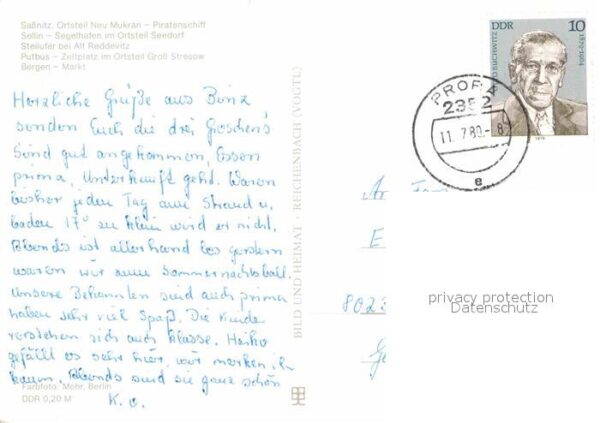 Saßnitz, Ortsteil Neu Mukran – Piratenschiff
Sellin – Segelhafen im Ortsteil Seedorf
Steilufer bei Alt Reddevitz
Putbus – Zeltplatz im Ortsteil Groß Stresow
Bergen – Markt
Herzliche Grüße aus Binz
senden Euch die drei Groschen's
Sind gut angekommen, Essen
prima, Unterkunft geht. Waren
bisher jeden Tag am Strand u.
baden 17° zu klein wird er nicht.
Abends ist allerhand los gestern
waren wir zum Sommernachtsball.
Unsere Bekannten sind auch prima
haben sehr viel Spaß. Die Kinder
verstehen sich auch klasse. Heiko
gefällt es sehr hier, wir merken ihn
kaum. Abends sind sie ganz schön
K. o.
Farbfoto: Mohr, Berlin
DDR 0,20 M
BILD UND HEIMAT · REICHENBACH (VOGTL)
DDR
10
OTTO BUCHWITZ
1879-1964
1979
PRORA
2352
11.7.80-8
e
An Fam
E
8023
privacy protection
Datenschutz